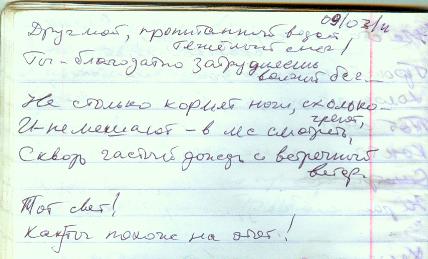 09/03/11
Друг мой, пропитанный водой,
тяжёлый снег!
Ты - благодатно затрудняешь
волчий бег...
Не столько кормят ноги, сколько -
греют,
И - не мешают - в лес смотреть,
Сквозь частый дождь и встречный
ветер.
Тот свет!
Как ты похож на этот!